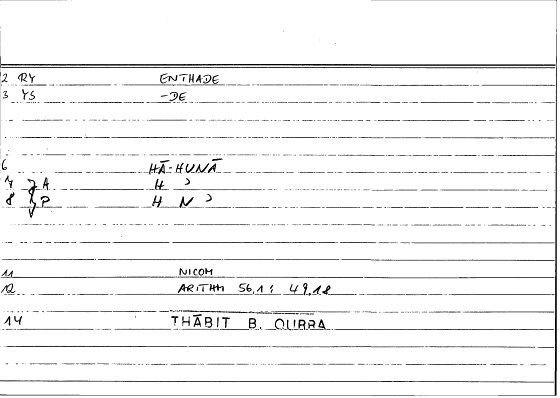 2 RY ENTHADE
3 YS -DE
6 HĀ-HUNĀ
7 A H ʾ
8 P H N ʾ
11 NICOM
12 ARITHM 56,1; 49,18
14 THĀBIT B. QURRA